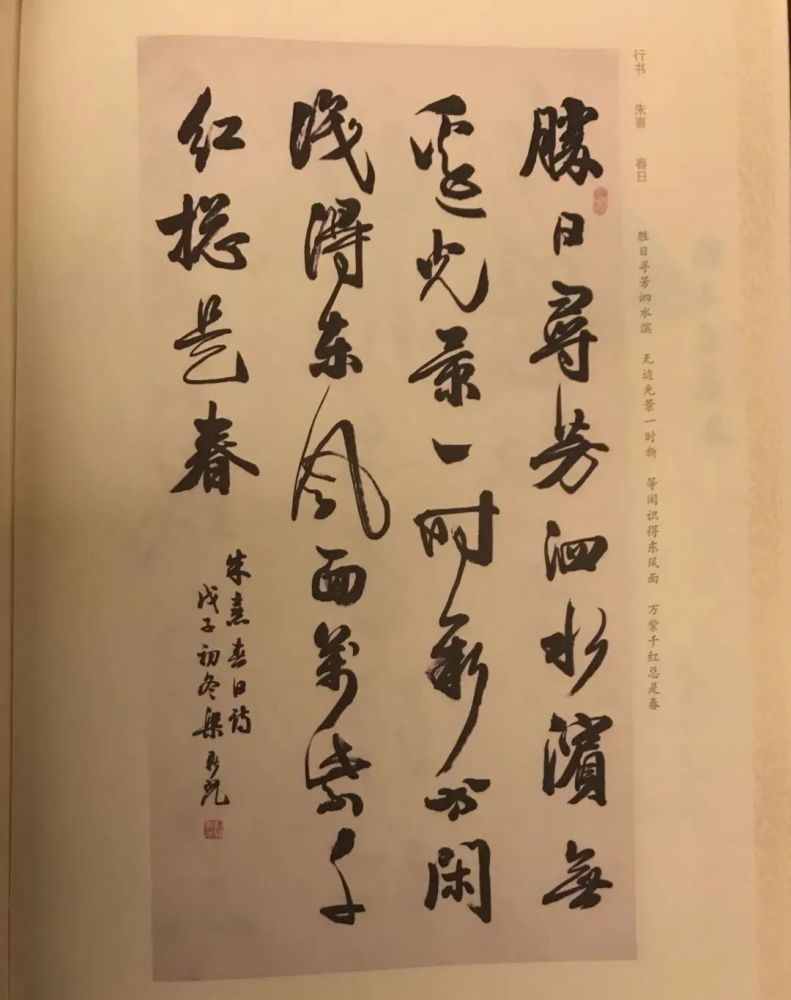 行书 朱熹 春日
胜日寻芳泗水滨 无边光景一时新 等闲识得东风面 万紫千红总是春
勝日尋芳泗水濱無
邊光景一时新等闲
識得东风面萬紫千
红揔是春
朱熹春日詩
戊子初冬梁